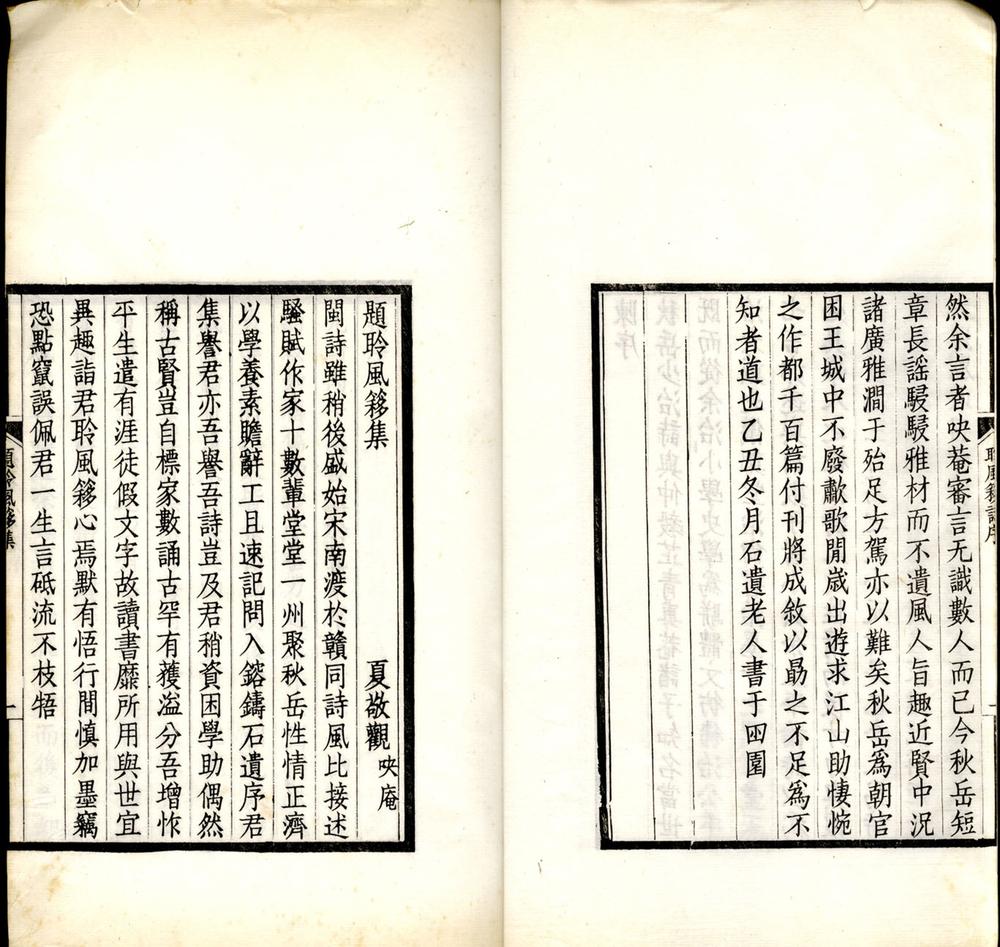 然余言者吷菴審言无識數人而已今秋岳短
章長謡駸駸雅材而不遺風人旨趣近賢中況
諸廣雅澗于殆足方駕亦以難矣秋岳爲朝官
困王城中不廢歗歌閒嵗出遊求江山助悽惋
之作都千百篇付刊將成敘以勗之不足爲不
知者道也乙丑冬月石遺老人書于匹園
題聆風簃集
夏敬觀吷庵
閩詩雖稍後盛始宋南渡於贛同詩風比接述
騷賦作家十數輩堂堂一州聚秋岳性情正濟
以學養素贍辭工且速記問入鎔鑄石遺序君
集譽君亦吾譽吾詩豈及君稍資困學助偶然
稱古賢豈自標家數誦古罕有獲溢分吾增怍
平生遣有涯徒假文字故讀書靡所用與世宜
異趣詣君聆風簃心焉默有悟行間慎加墨竊
恐點竄誤佩君一生言砥流不枝牾
題聆風簃集
一